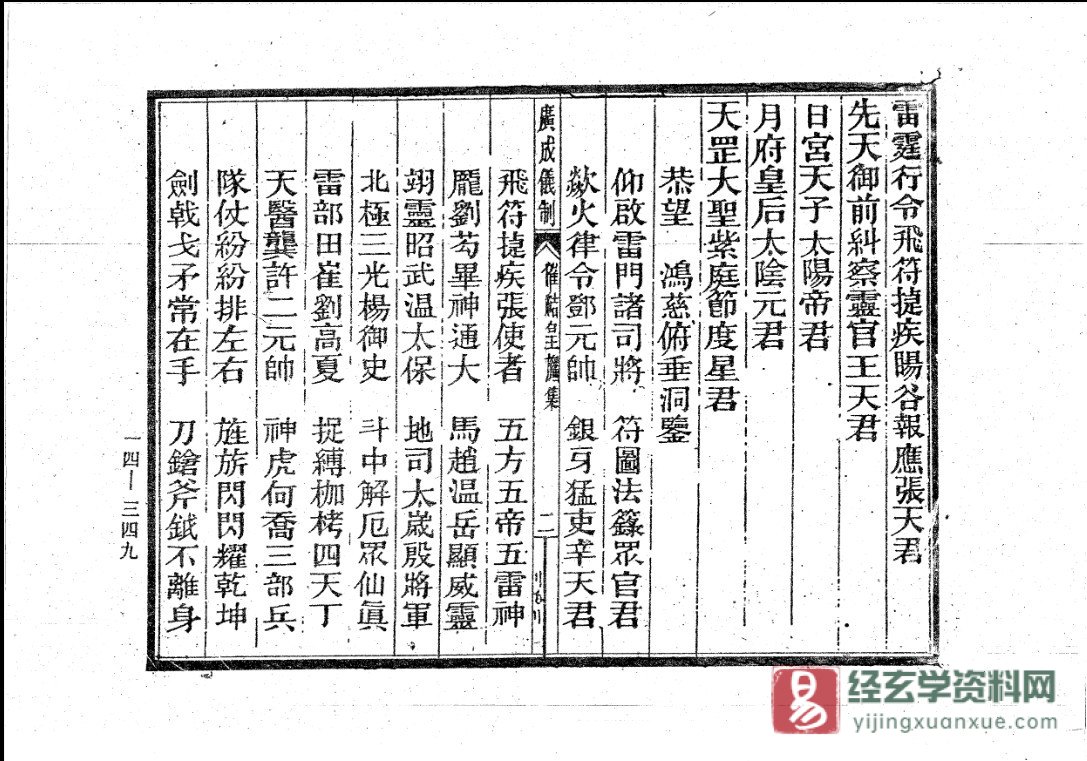 雷霆行令飛符捷疾暘谷報應張天君
先天御前糾察靈官王天君
日宮天子太陽帝君
月府皇后太陰元君
天罡大聖紫庭節度星君
恭望　鴻慈俯垂洞鑒
仰啟雷門諸司將　符圖法籙眾官君
歘火律令鄧元帥　銀牙猛吏辛天君
廣成儀制
催結皇旛集
二
飛符捷疾張使者　五方五帝五雷神
龐劉芶畢神通大　馬趙温岳顯威靈
翊靈昭武温太保　地司太歲殷將軍
北極三光楊御史　斗中解厄眾仙眞
雷部田崔劉高夏　捉縛枷栲四天丁
天醫龔許二元帥　神虎何喬三部兵
隊仗紛紛排左右　旌旂閃閃耀乾坤
劍戟戈矛常在手　刀鎗斧鉞不離身
一四—三四九
易
经玄学资料网
yijingxuanxue.com